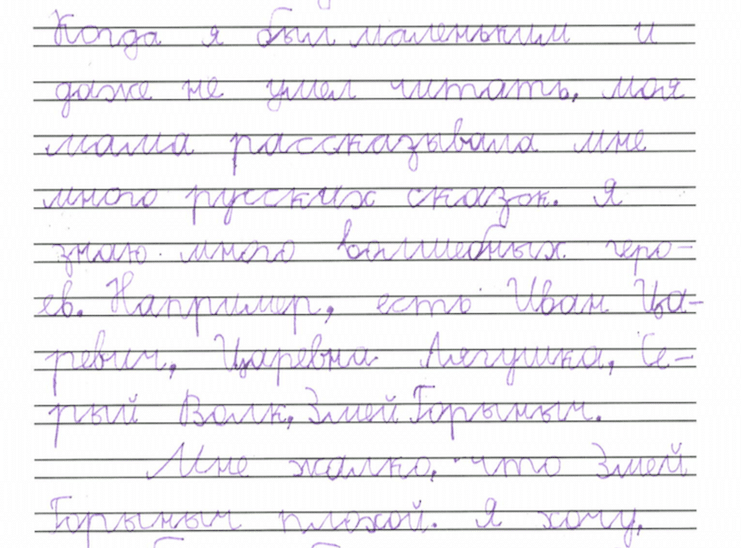 Когда я был маленьким и
даже не умел читать, моя
мама рассказывала мне
много русских сказок. Я
знаю много волшебных геро-
ев. Например, есть Иван Ца-
ревич, Царевна Лягушка, Се-
рый Волк, Змей Горыныч.
Мне жалко, что Змей
Горыныч плохой. Я хочу,